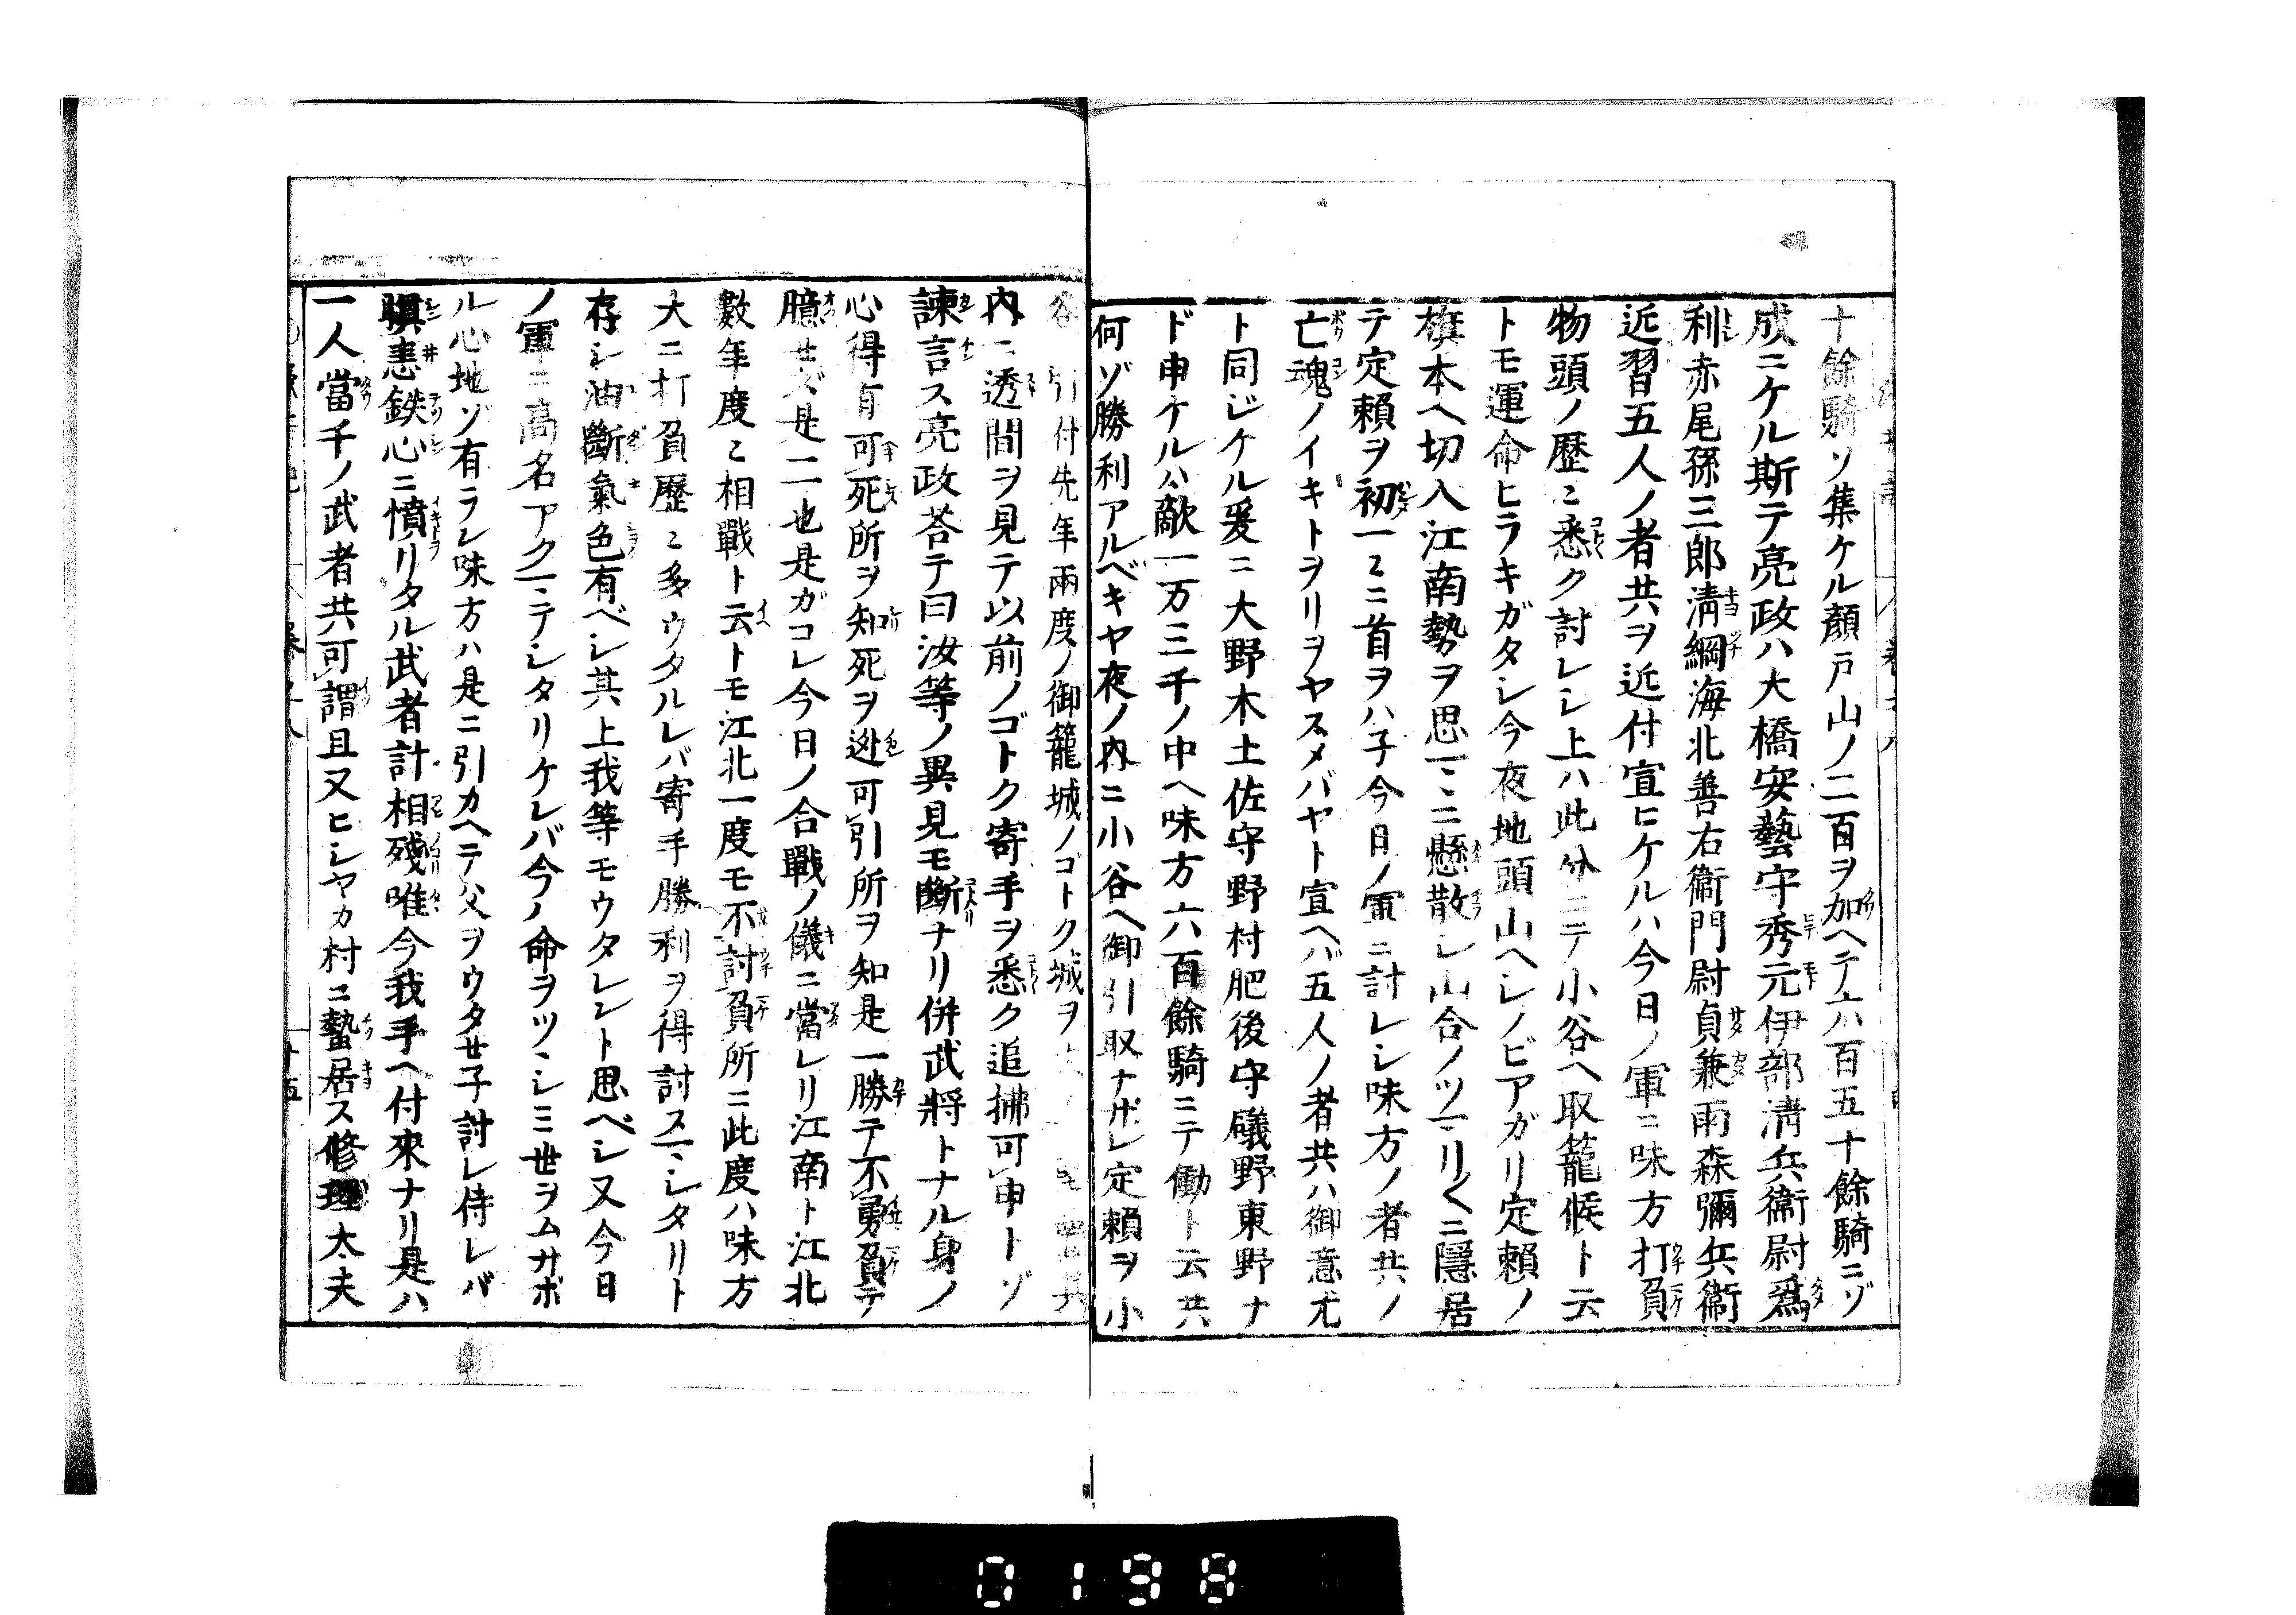 十餘騎ソ集ケル顔戸山ノ二百ヲ加ヘテ六百五十餘騎ニゾ
成ニケル斯テ亮政ハ大橋安藝守秀元伊部清兵衞尉爲
利赤尾孫三郎清綱海北善右衞門尉貞兼雨森彌兵衞
近習五人ノ者共ヲ近付宣ヒケルハ今日ノ軍ニ味方打負
物頭ノ歴〻悉ク討レシ上ハ此分ニテ小谷ヘ取籠候ト云
トモ運命ヒラキガタシ今夜地頭山ヘシノビアガリ定賴ノ
旗本ヘ切入江南勢ヲ思〻ニ懸散シ山合ノツマリ〱ニ隱居
テ定賴ヲ初一〻ニ首ヲハ子今日ノ軍ニ討レシ味方ノ者共ノ
亡魂ノイキトヲリヲヤスメバヤト宣ヘバ五人ノ者共ハ御意尤
ト同ジケル爰ニ大野木土佐守野村肥後守礒野東野ナ
ド申ケルハ敵一万三千ノ中ヘ味方六百餘騎ニテ働ト云共
何ゾ勝利アルベキヤ夜ノ内ニ小谷ヘ御引取ナサレ定賴ヲ小
谷 引付先年兩度ノ御籠城ノゴトク城ヲ
内ニ透間ヲ見テ以前ノゴトク寄手ヲ悉ク追拂可申トゾ
諫言ス亮政荅テ曰汝等ノ異見モ斷ナリ併武將トナル身ノ
心得有可死所ヲ知死ヲ逊可引所ヲ知是一勝テ不勇負テ
臆せズ是二也是ガコレ今日ノ合戰ノ儀ニ當レリ江南ト江北
數年度〻相戰ト云トモ江北一度モ不討負所ニ此度ハ味方
大ニ打負歷〻多ウタルレバ寄手勝利ヲ得討スマシタリト
存シ油斷氣色有ベシ其上我等モウタレント思ベシ又今日
ノ軍ニ高名アクマテシタリケレバ今ノ命ヲツヽシミ世ヲムサボ
ル心地ゾ有ラン味方ハ是ニ引カヘテ父ヲウタせ子討レ侍レバ
瞋恚鉄心ニ憤リタル武者計相殘唯今我手ヘ付來ナリ是ハ
一人當千ノ武者共可謂且又ヒシヤカ村ニ蟄居ス修理太夫
0198